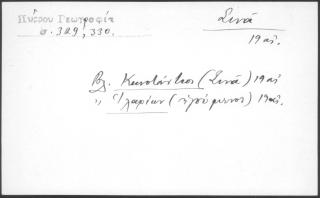 Πύρρου Γεωγραφία
σ. 329, 330.
Σινᾶ
19 αἰ.
Βλ. Κωνστάντιος (Σινᾶ) 19 αἰ
" Ἱλαρίων (ἡγούμενος) 19 αἰ.